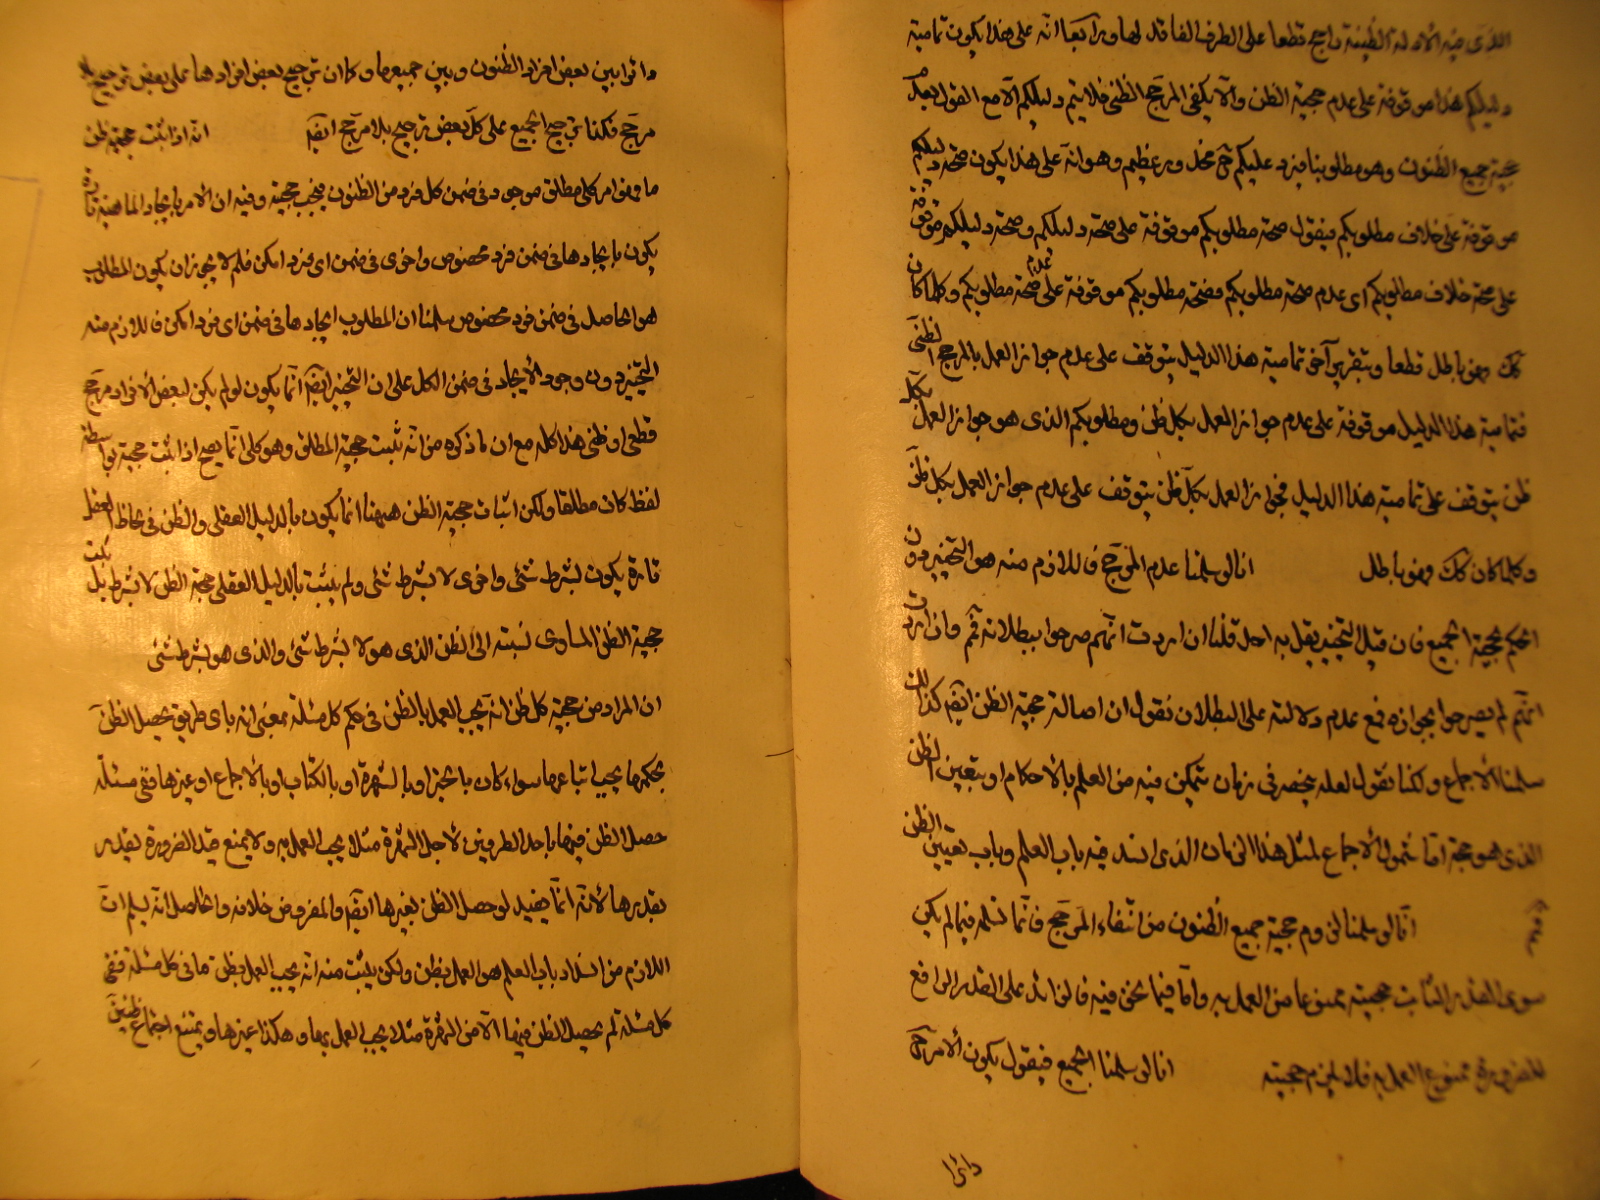 الذى فيه الأدلة الظنية راجح قطعا على الطرف الفاقد لها ورابعا انه على هذا يكون تمامية
دليلكم هذا موقوفة على عدم حجية الظن والا يكفى المرجح الظنى فلا يتم دليلكم الا مع القول بعدم
حجية جميع الظنون وهو مطلوبنا فيرد عليكم ح وهو انه على هذا يكون صحة دليلكم
موقوفة على خلاف مطلوبكم فيقول صحة مطلوبكم موقوفة على صحة دليلكم وصحة دليلكم موقوفة
على صحة خلاف مطلوبكم اى عدم صحة مطلوبكم فصحة مطلوبكم موقوفة على عدم صحة مطلوبكم وكلما كان
كك فهو باطل قطعا وبتقرير آخر تمامية هذا الدليل يتوقف على عدم جواز العمل بالمرجح الظنى
فتمامية هذا الدليل موقوفة على عدم جواز العمل بكل ظن ومطلوبكم الذى هو جواز العمل بكل
ظن يتوقف على تمامية هذا الدليل فجواز العمل بكل ظن يتوقف على عدم جواز العمل بكل ظن
وكلما كان كك فهو باطل انا لو سلمنا عدم المرجح فاللازم منه هو التخيير دون
الحكم بحجية الجميع فان قيل التخيير لم يقل به احد قلنا ان اردت انهم صرحوا ببطلانه ثم وان اردت
انهم لم يصرحوا بجوازه فمع عدم دلالته على البطلان نقول ان اصالة حجية الظن ايضا كذلك
سلمنا الأجماع ولكنا نقول لعله ينحصر فى زمان تمكن فيه من العلم بالأحكام او بتعيين الظن
الذى هو حجة اما شمول الأجماع لمثل هذا الزمان الذى انسد فيه باب العلم وباب تعيين الظن
انا لو سلمنا لزوم حجية جميع الظنون من انتفاء المرجح فانما نسلمه فيما لم يكن
سوى القدر الثابت حجيته ممنوعا من العمل به واما فيما نحن فيه فالزائد على القدر الرافع
للضرورة ممنوع العمل به فلا يلزم حجيته انا لو سلمنا الجميع فيقول يكون الأمر ح
دائرا
دائرا بين بعض افراد الظنون وبين جميعها وكما ان ترجيح بعض افرادها على بعض ترجيح بلا
مرجح فكذا ترجيح الجميع على كل بعض ترجيح بلا مرجح ايضا انه اذا ثبت حجية ظن
ما وهو امر كلى مطلق موجود فى ضمن كل فرد من الظنون فيجب حجيته وفيه ان الأمر بايجاد الماهية تارة
يكون بايجادها فى ضمن فرد مخصوص واخرى فى ضمن اى فرد امكن فلم لا يجوز ان يكون المطلوب
هو الحاصل فى ضمن فرد مخصوص سلمنا ان المطلوب ايجادها فى ضمن اى فرد امكن فاللازم منه
التخيير دون وجود الأيجاد فى ضمن الكل على ان التخيير ايضا انما يكون لو لم يكن لبعض الأفراد مرجح
قطعى او ظنى هذا كله مع ان ما ذكروه من انه ثبت حجية المطلق وهو كلى انما يصح اذا ثبت حجيته بواسطة
لفظ كان مطلقا ولكن اثبات حجية الظن ههنا انما يكون بالدليل العقلى والظن فى لحاظ العقل
تارة يكون بشرط شئى واخرى لا بشرط شئى ولم يثبت بالدليل العقلى حجية الظن لا بشرط بل ثبت
حجية الظن المساوى نسبته الى الظن الذى هو لا بشرط شئى والذى هو بشرط شئى
ان المراد من حجية كل ظن انه يجب العمل بالظن فى حكم كل مسئلة بمعنى انه باى طريق يحصل الظن
بحكمها يجب اتباعها سواء كان بالخبر او بالشهرة او بالكتاب او بالأجماع او غيرها ففى مسئلة
حصل الظن فيها باحد الطرفين لأجل الشهرة مثلا يجب العمل به ولا يمنع قيد الضرورة تقدر
بقدرها لأنه انما يفيد لو حصل الظن بغيرها ايضا والمفروض خلافه والحاصل انه نسلم ان
اللازم من انسداد باب العلم هو العمل بظن ولكن يثبت منه انه يجب العمل بظن ما فى كل مسئلة ففى
كل مسئلة لم يحصل الظن فيها الا من الشهرة مثلا يجب العمل بها وهكذا غيرها ويمتنع اجتماع ظنين